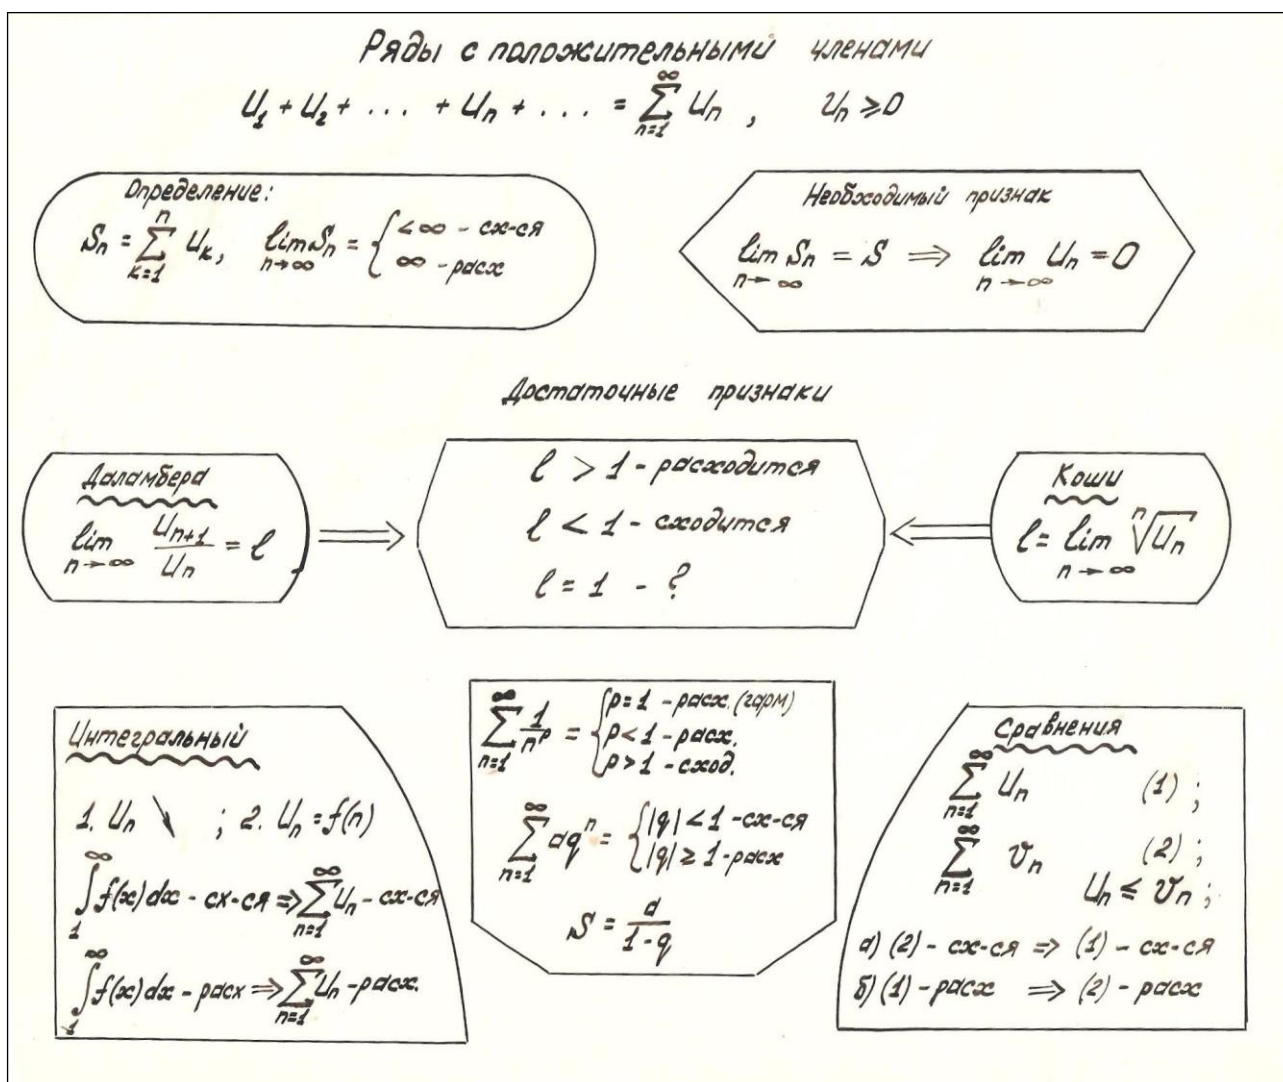 Ряды с положительными членами
U₁ + U₂ + . . . + Uₙ + . . . = ∑_{n=1}^{∞} Uₙ , Uₙ ≥ 0
Определение:
Sₙ = ∑_{k=1}^{n} Uₖ, lim_{n→∞} Sₙ = { < ∞ - сх-ся
∞ - расх
Необходимый признак
lim_{n→∞} Sₙ = S ⇒ lim_{n→∞} Uₙ = 0
Достаточные признаки
Даламбера
lim_{n→∞} Uₙ₊₁/Uₙ = l
l > 1 - расходится
l < 1 - сходится
l = 1 - ?
Коши
l = lim_{n→∞} ⁿ√Uₙ
Интегральный
1. Uₙ ↘ ; 2. Uₙ = f(n)
∫₁^∞ f(x) dx - сх-ся ⇒ ∑_{n=1}^{∞} Uₙ - сх-ся
∫₁^∞ f(x) dx - расх ⇒ ∑_{n=1}^{∞} Uₙ - расх.
∑_{n=1}^{∞} 1/n^p = { p = 1 - расх. (гарм)
p < 1 - расх.
p > 1 - сход.
∑_{n=1}^{∞} aqⁿ = { |q| < 1 - сх-ся
|q| ≥ 1 - расх
S = a/(1 - q)
Сравнения
∑_{n=1}^{∞} Uₙ (1) ;
∑_{n=1}^{∞} vₙ (2) ;
Uₙ ≤ vₙ ;
а) (2) - сх-ся ⇒ (1) - сх-ся
б) (1) - расх ⇒ (2) - расх